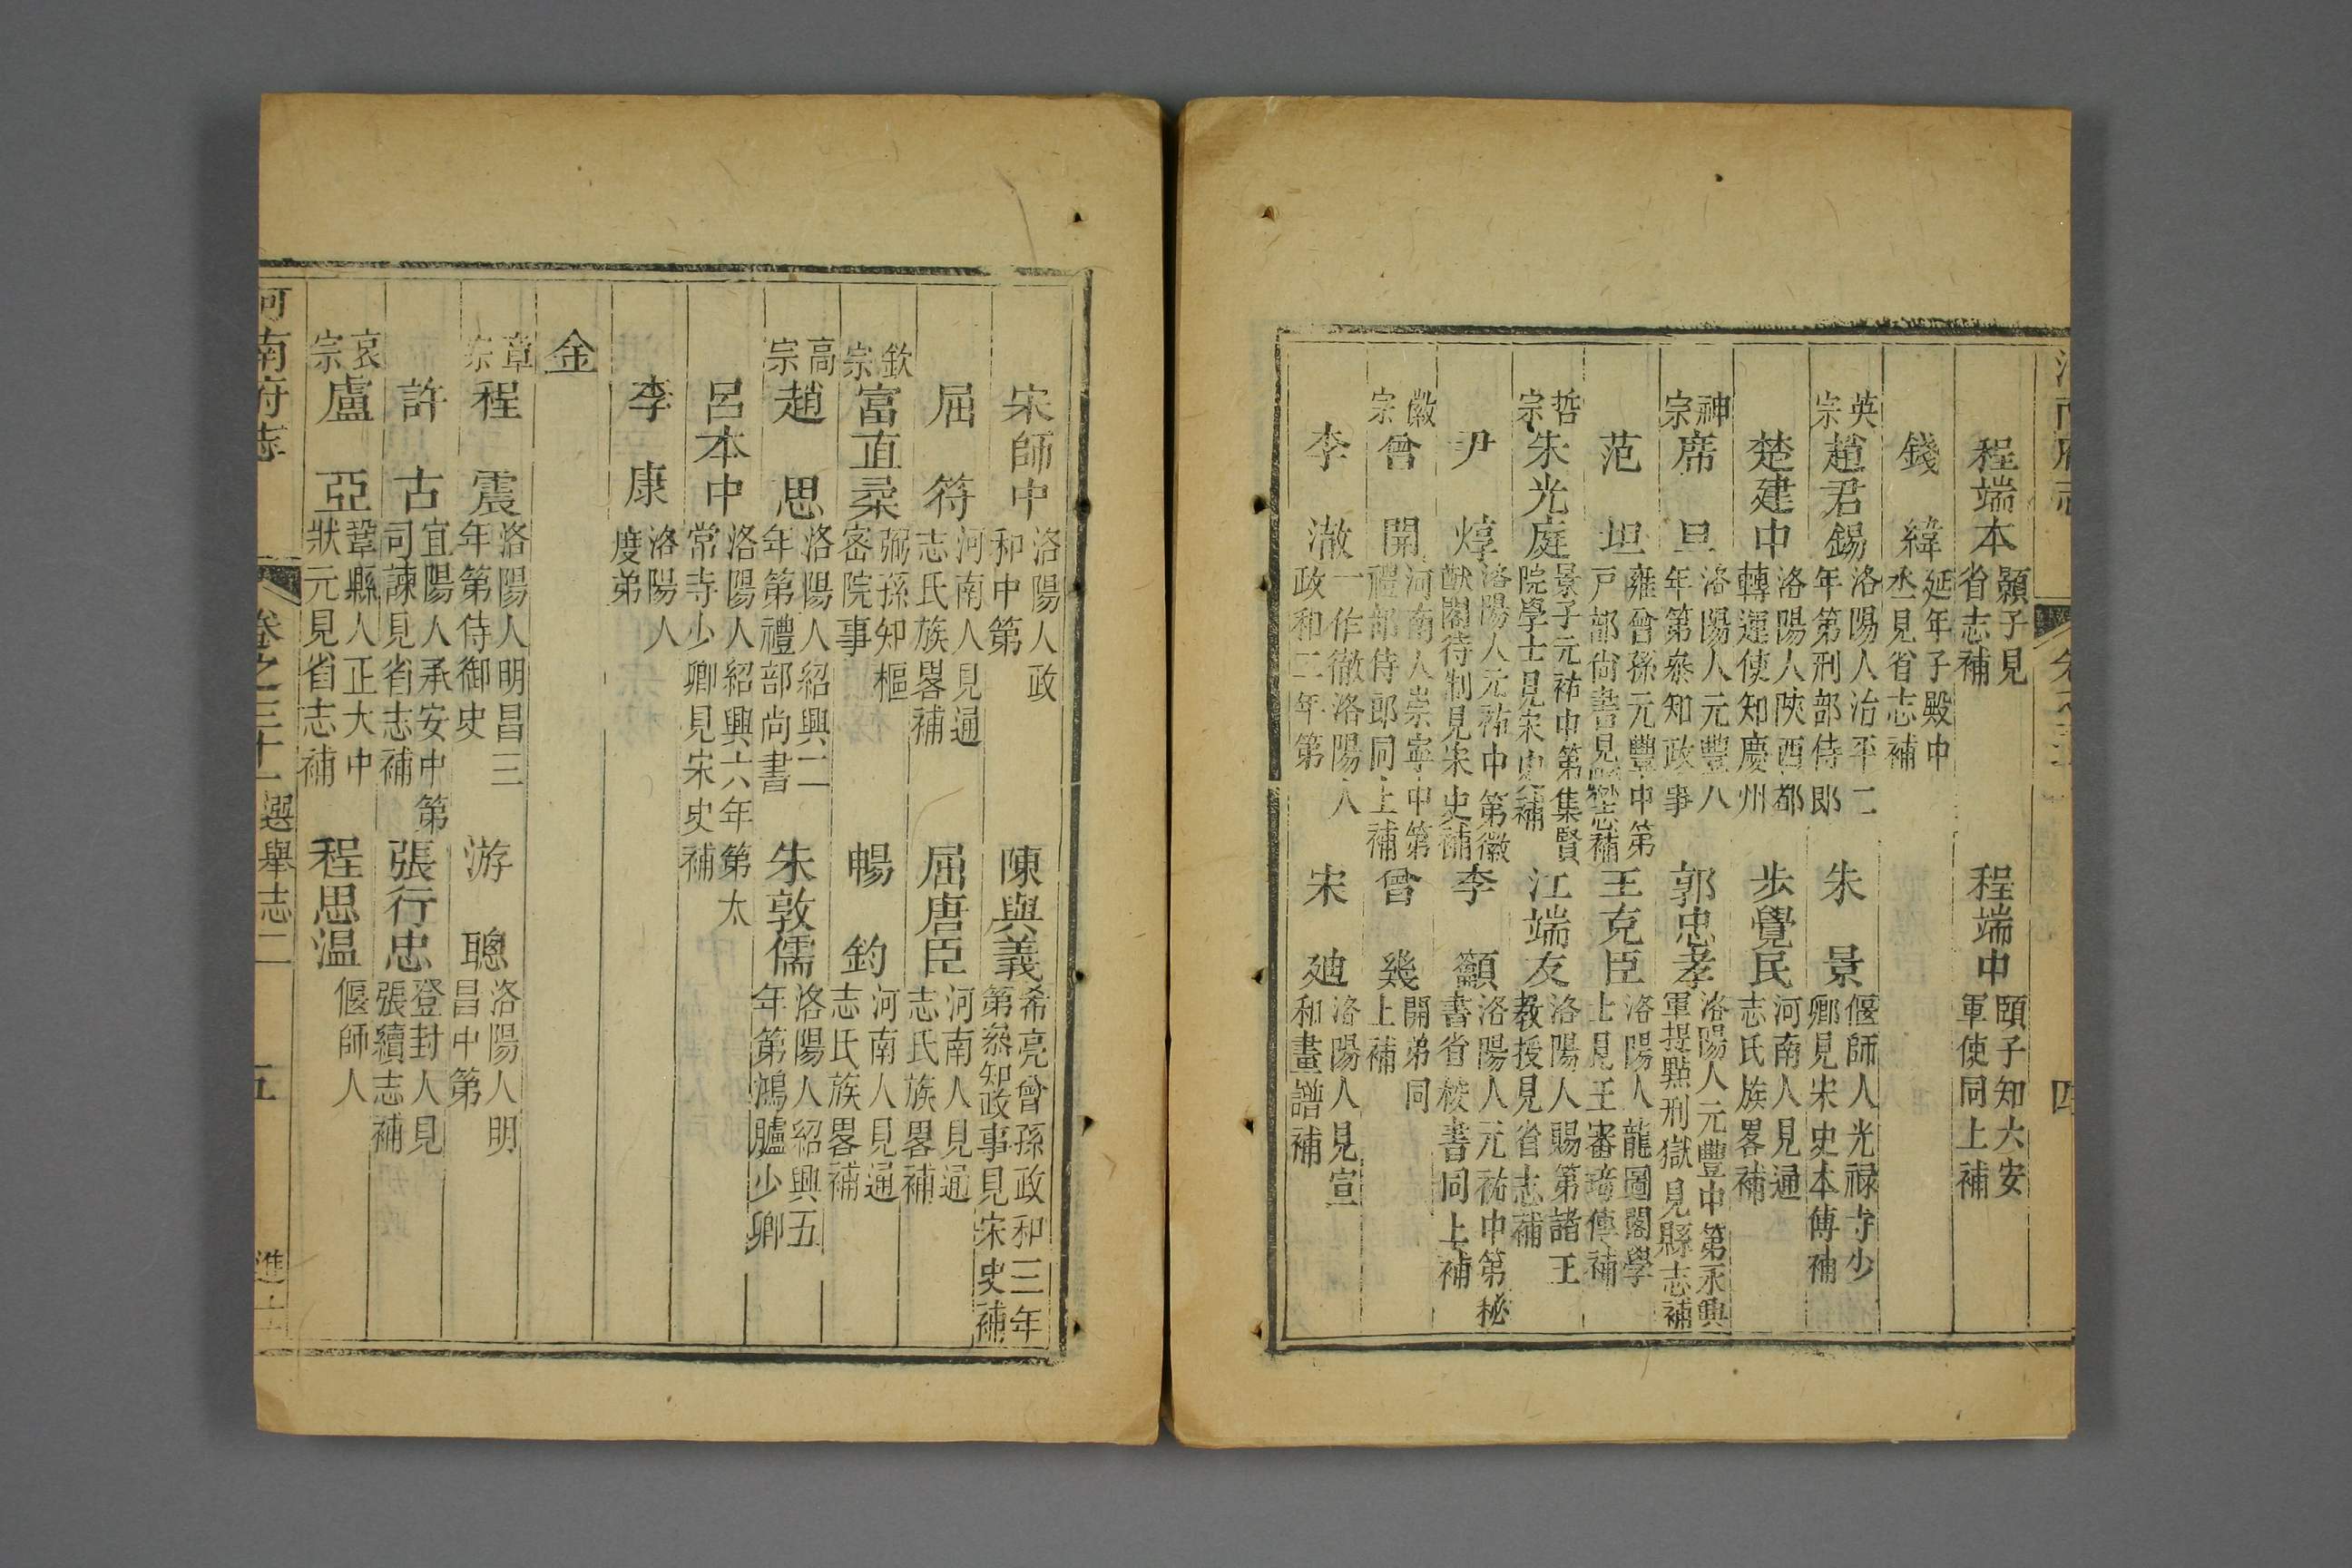 程端本 顥子見省志補 程端中 頤子知六安軍使同上補
錢緯 延年子殿中丞見省志補
英宗 趙君錫 洛陽人治平二年第刑部侍郎 朱景 偃師人光祿寺少卿見宋史本傳補
楚建中 洛陽人陜西都轉運使知慶州 步覺民 河南人見通志氏族畧補
神宗 席旦 洛陽人元豐八年第叅知政事 郭忠孝 洛陽人元豐中第永興軍提點刑獄見縣志補
范坦 雍曾孫元豐中第戸部尚書見縣志補 王克臣 洛陽人龍圖閣學士見王審琦傳補
哲宗 朱光庭 景子元祐中第集賢院學士見宋史補 江端友 洛陽人賜第諸王教授見省志補
尹焞 洛陽人元祐中第徽猷閣待制見宋史補 李籲 洛陽人元祐中第秘書省校書同上補
徽宗 曾開 河南人崇寧中第禮部侍郎同上補 曾幾 開弟同上補
李澈 一作徹洛陽人政和二年第 宋廸 洛陽人見宣和畫譜補
四
宋師中 洛陽人政和中第 陳與義 希亮曾孫政和三年第叅知政事見宋史補
屈符 河南人見通志氏族畧補 屈唐臣 河南人見通志氏族畧補
欽宗 富直柔 弼孫知樞密院事 暢鈞 河南人見通志氏族畧補
高宗 趙思 洛陽人紹興二年第禮部尚書 朱敦儒 洛陽人紹興五年第鴻臚少卿
呂本中 洛陽人紹興六年第太常寺少卿見宋史補
李康 洛陽人度弟
金
章宗 程震 洛陽人明昌三年第侍御史 游聰 洛陽人明昌中第
許古 宜陽人承安中第司諫見省志補 張行忠 登封人見張續志補
哀宗 盧亞 鞏縣人正大中狀元見省志補 程思温 偃師人
河南府志 卷之三十一 選舉志二 五 進士